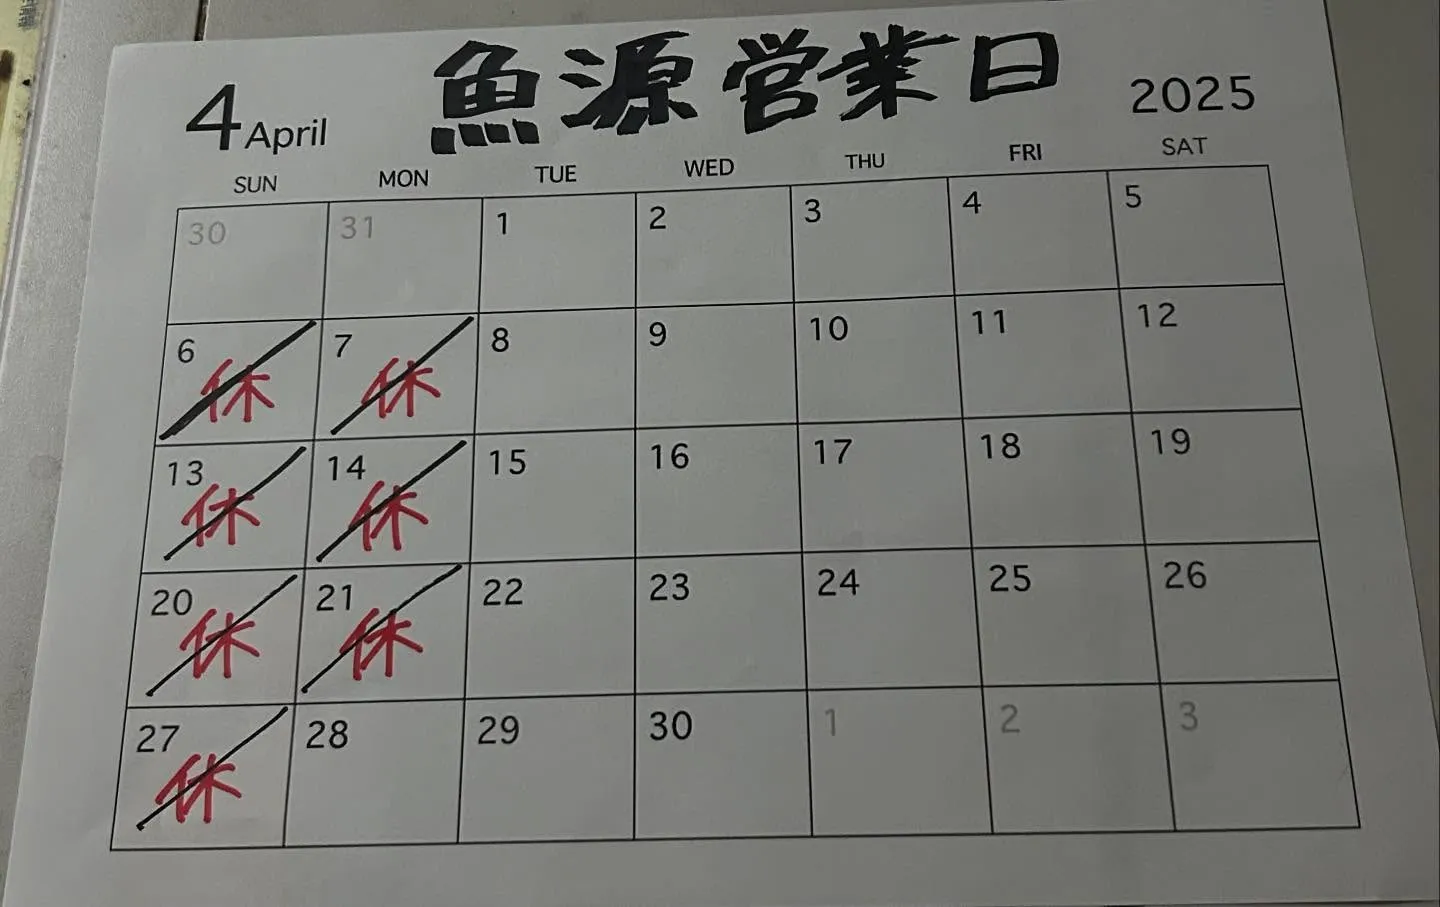 4 April 魚源営業日 2025
SUN MON TUE WED THU FRI SAT
30 31 1 2 3 4 5
6 7 8 9 10 11 12
休 休
13 14 15 16 17 18 19
休 休
20 21 22 23 24 25 26
休 休
27 28 29 30 1 2 3
休